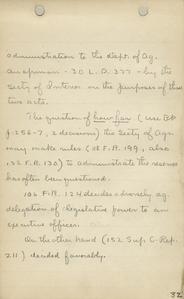 administration to the Dept. of Ag.
An opinion - 30 L.D. 377 - by the
Secty of Interior on the purposes of these
two acts.
The question of how far (use Bk
p 256-7, 2 decisions) the Secty of Agr.
may make rules (58 F.R. 199, also
132 F.R. 130) to administrate the reserves
has often been questioned.
106 F.R. 124 decides adversely ag.
delegation of legislative power to an
executive officer.
On the other hand (152 Sup. C. Rep.
211) decided favorably.
32